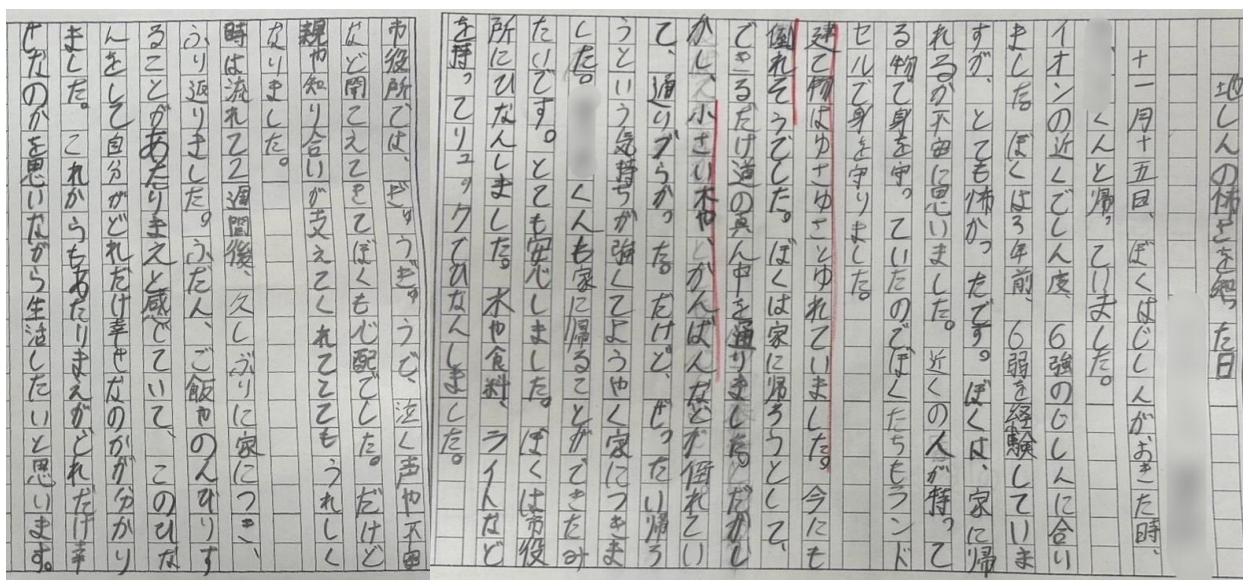 地しんの怖さを知った日
十一月十五日、ぼくはじしんがおきた時、
くんと帰っていました。
イオンの近くでしん度6強のじしんに合い
ました。ぼくは3年前、6弱を経験していま
すが、とても怖かったです。ぼくは、家に帰
れるが不安に思いました。近くの人が持って
る物で身を守っていたのでぼくたちもランド
セルで身を守りました。
建て物はゆさゆさとゆれていました。今にも
倒れそうでした。ぼくは家に帰ろうとして、
できるだけ道の真ん中を通りました。だがし
かし、小さい木や、かんばんなどが倒れてい
て、通りづらかった。だけど、ぜったい帰ろ
うという気持ちが強くてようやく家につきま
した。くんも家に帰ることができたみ
たいです。とても安心しました。ぼくは市役
所にひなんしました。水や食料、ライトなど
を持ってリュックでひなんしました。
市役所では、ぎゅうぎゅうで、泣く声や不
など聞こえてきてぼくも心配でした。だけど
親や知り合いが支えてくれてとてもうれしく
なりました。
時は流れて2週間後、久しぶりに家につき、
ふり返りました。ふだん、ご飯やのんびりす
ることがあたりまえと感じていて、このひな
んをして自分がどれだけ幸せなのかが分かり
ました。これからもあたりまえがどれだけ幸
せなのかを思いながら生活したいと思います。